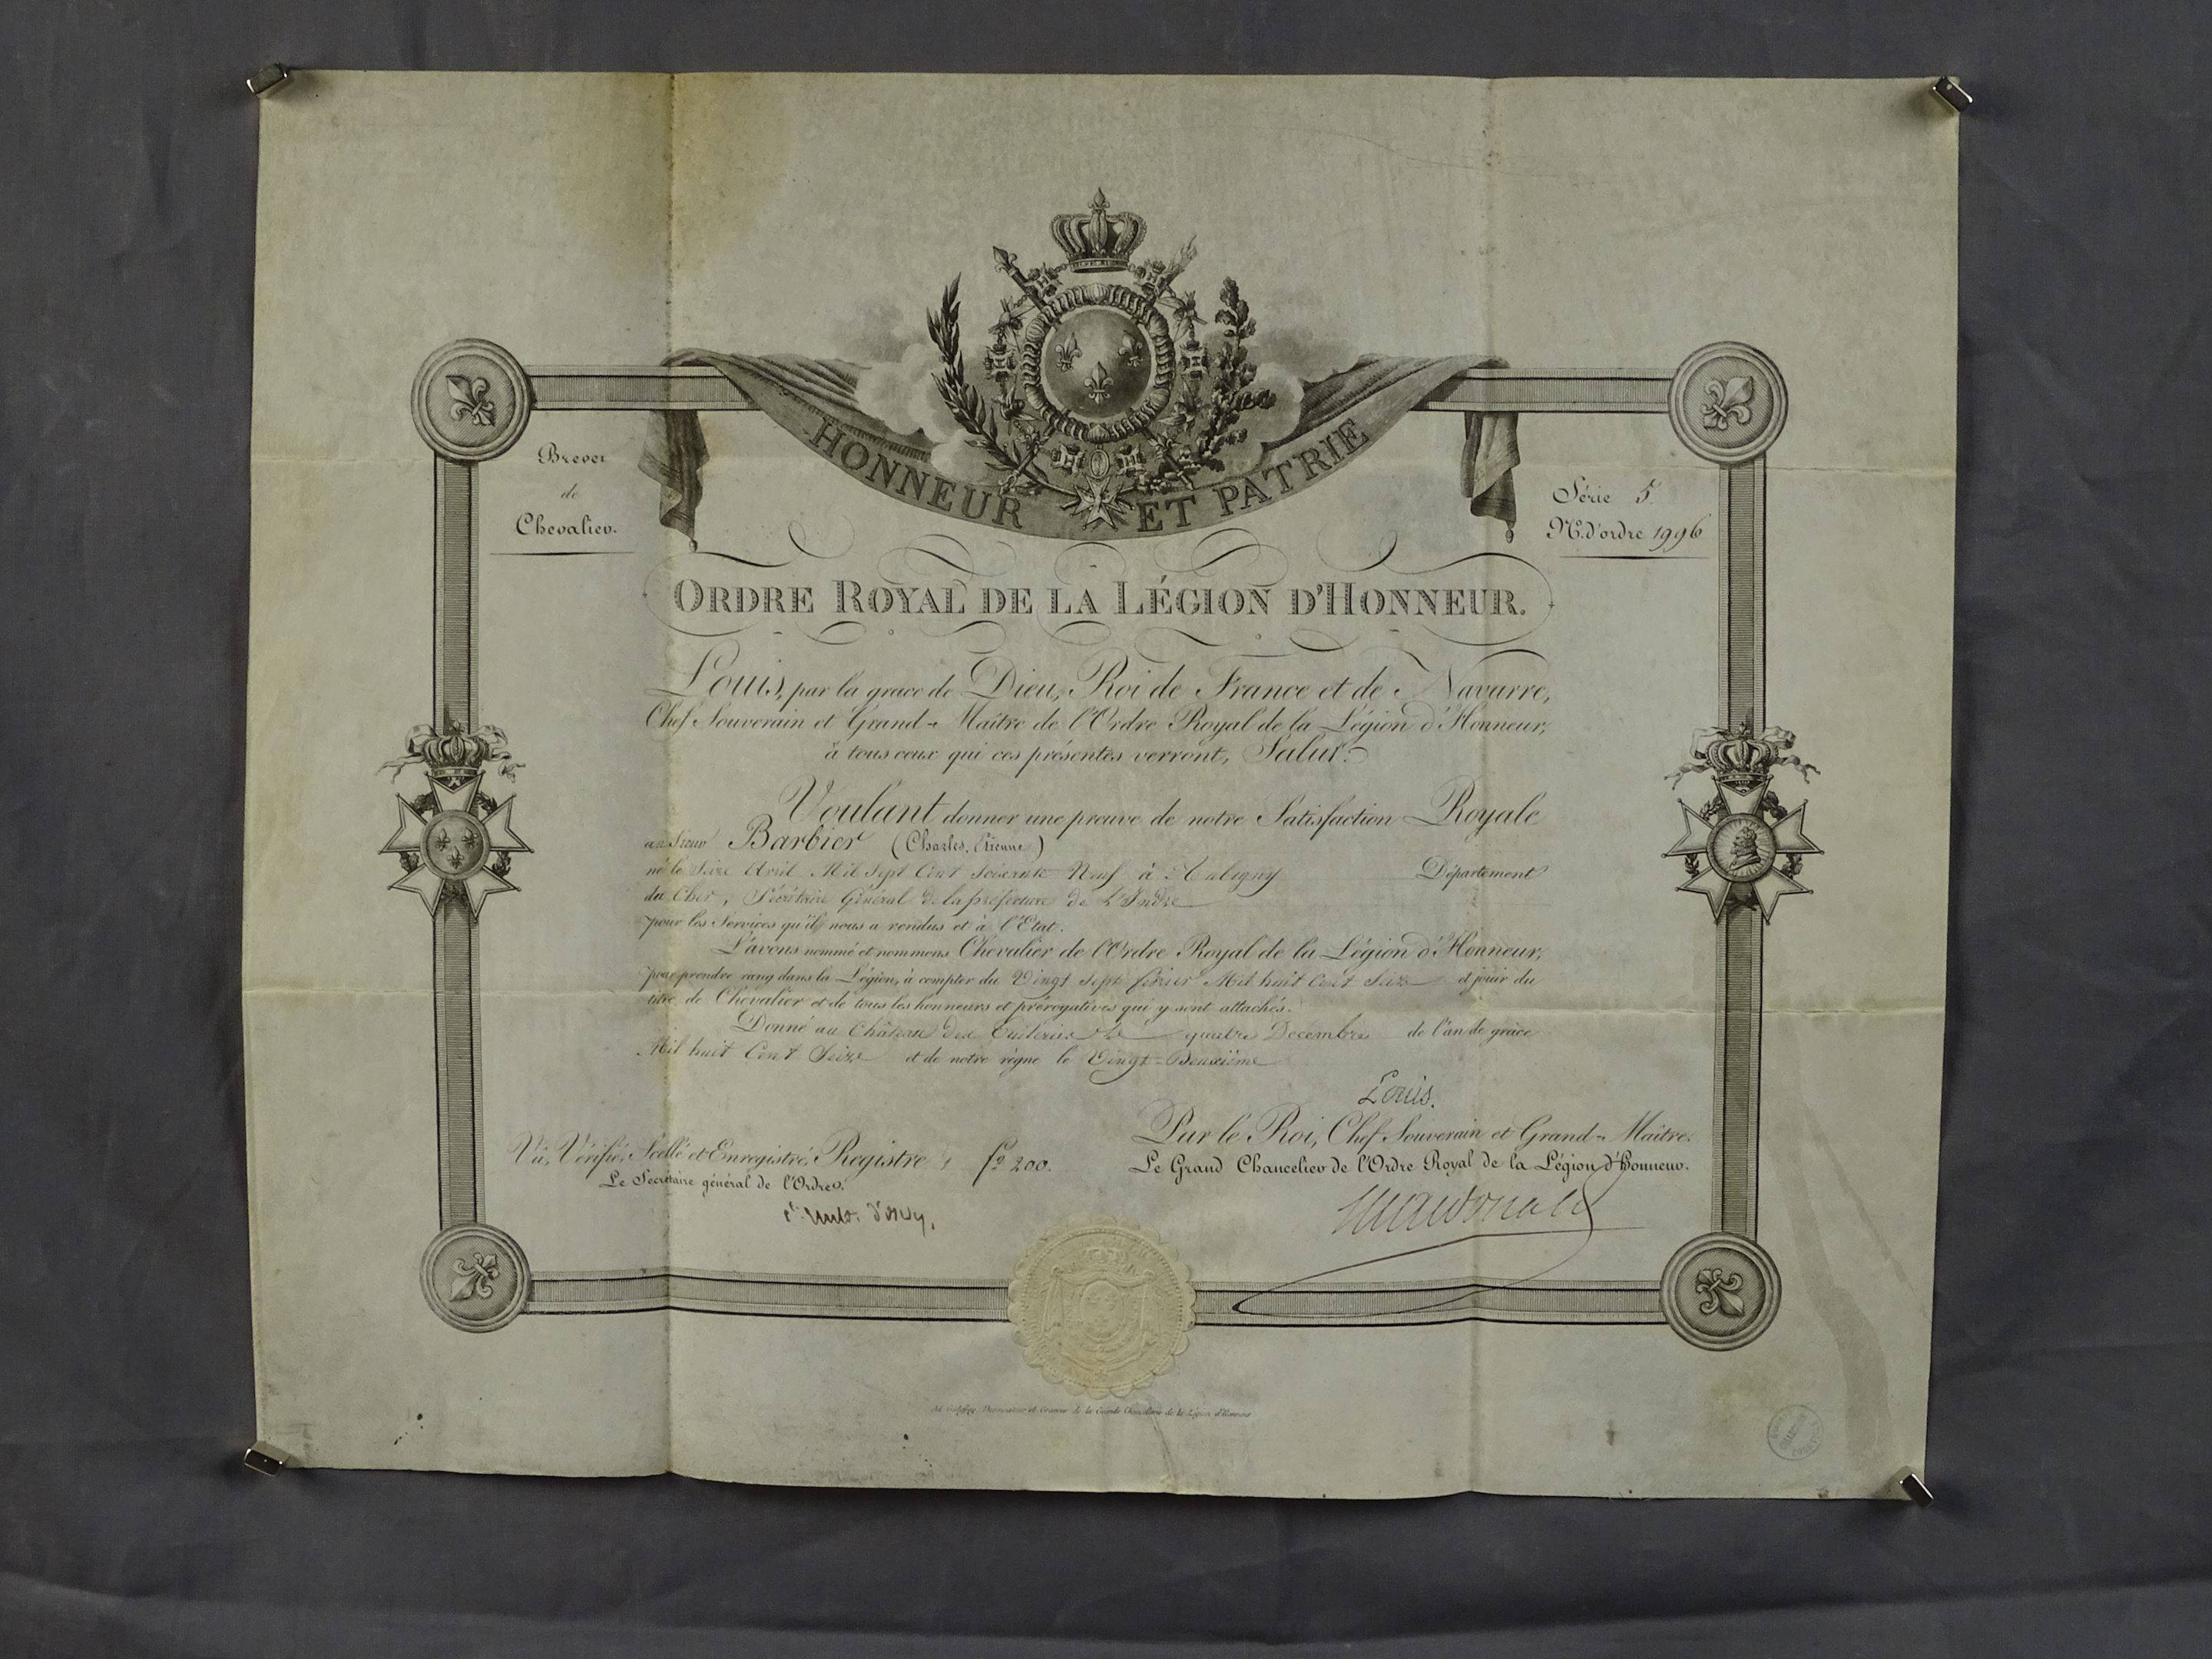 HONNEUR ET PATRIE
Brevet
de
Chevalier.
Série 5
N.º d'ordre 1996
ORDRE ROYAL DE LA LÉGION D'HONNEUR.
Louis, par la grace de Dieu, Roi de France et de Navarre,
Chef Souverain et Grand-Maître de l'Ordre Royal de la Légion d'Honneur,
à tous ceux qui ces présentes verront, Salut.
Voulant donner une preuve de notre Satisfaction Royale
au Sieur Barbier (Charles, Etienne)
né le Seize Avril Mil Sept Cent Soixante Neuf à Aubigny Département
du Cher, Sécrétaire Général de la préfecture de L'Indre
pour les Services qu'il nous a rendus et à l'Etat.
L'avons nommé et nommons Chevalier de l'Ordre Royal de la Légion d'Honneur,
pour prendre rang dans la Légion, à compter du Vingt Sept février Mil huit Cent Seize et jouir du
titre de Chevalier et de tous les honneurs et prérogatives qui y sont attachés.
Donné au Château des Tuileries le quatre Décembre de l'an de grâce
Mil huit Cent Seize et de notre règne le Vingt-Deuxième
Louis.
Par le Roi, Chef Souverain et Grand-Maître.
Le Grand Chancelier de l'Ordre Royal de la Légion d'Honneur.
Macdonald
Vu, Vérifié, Scellé et Enregistré, Registre 1 f.º 200.
Le Secrétaire général de l'Ordre.
Dessinateur et Graveur de la Grande Chancellerie de la Légion d'Honneur